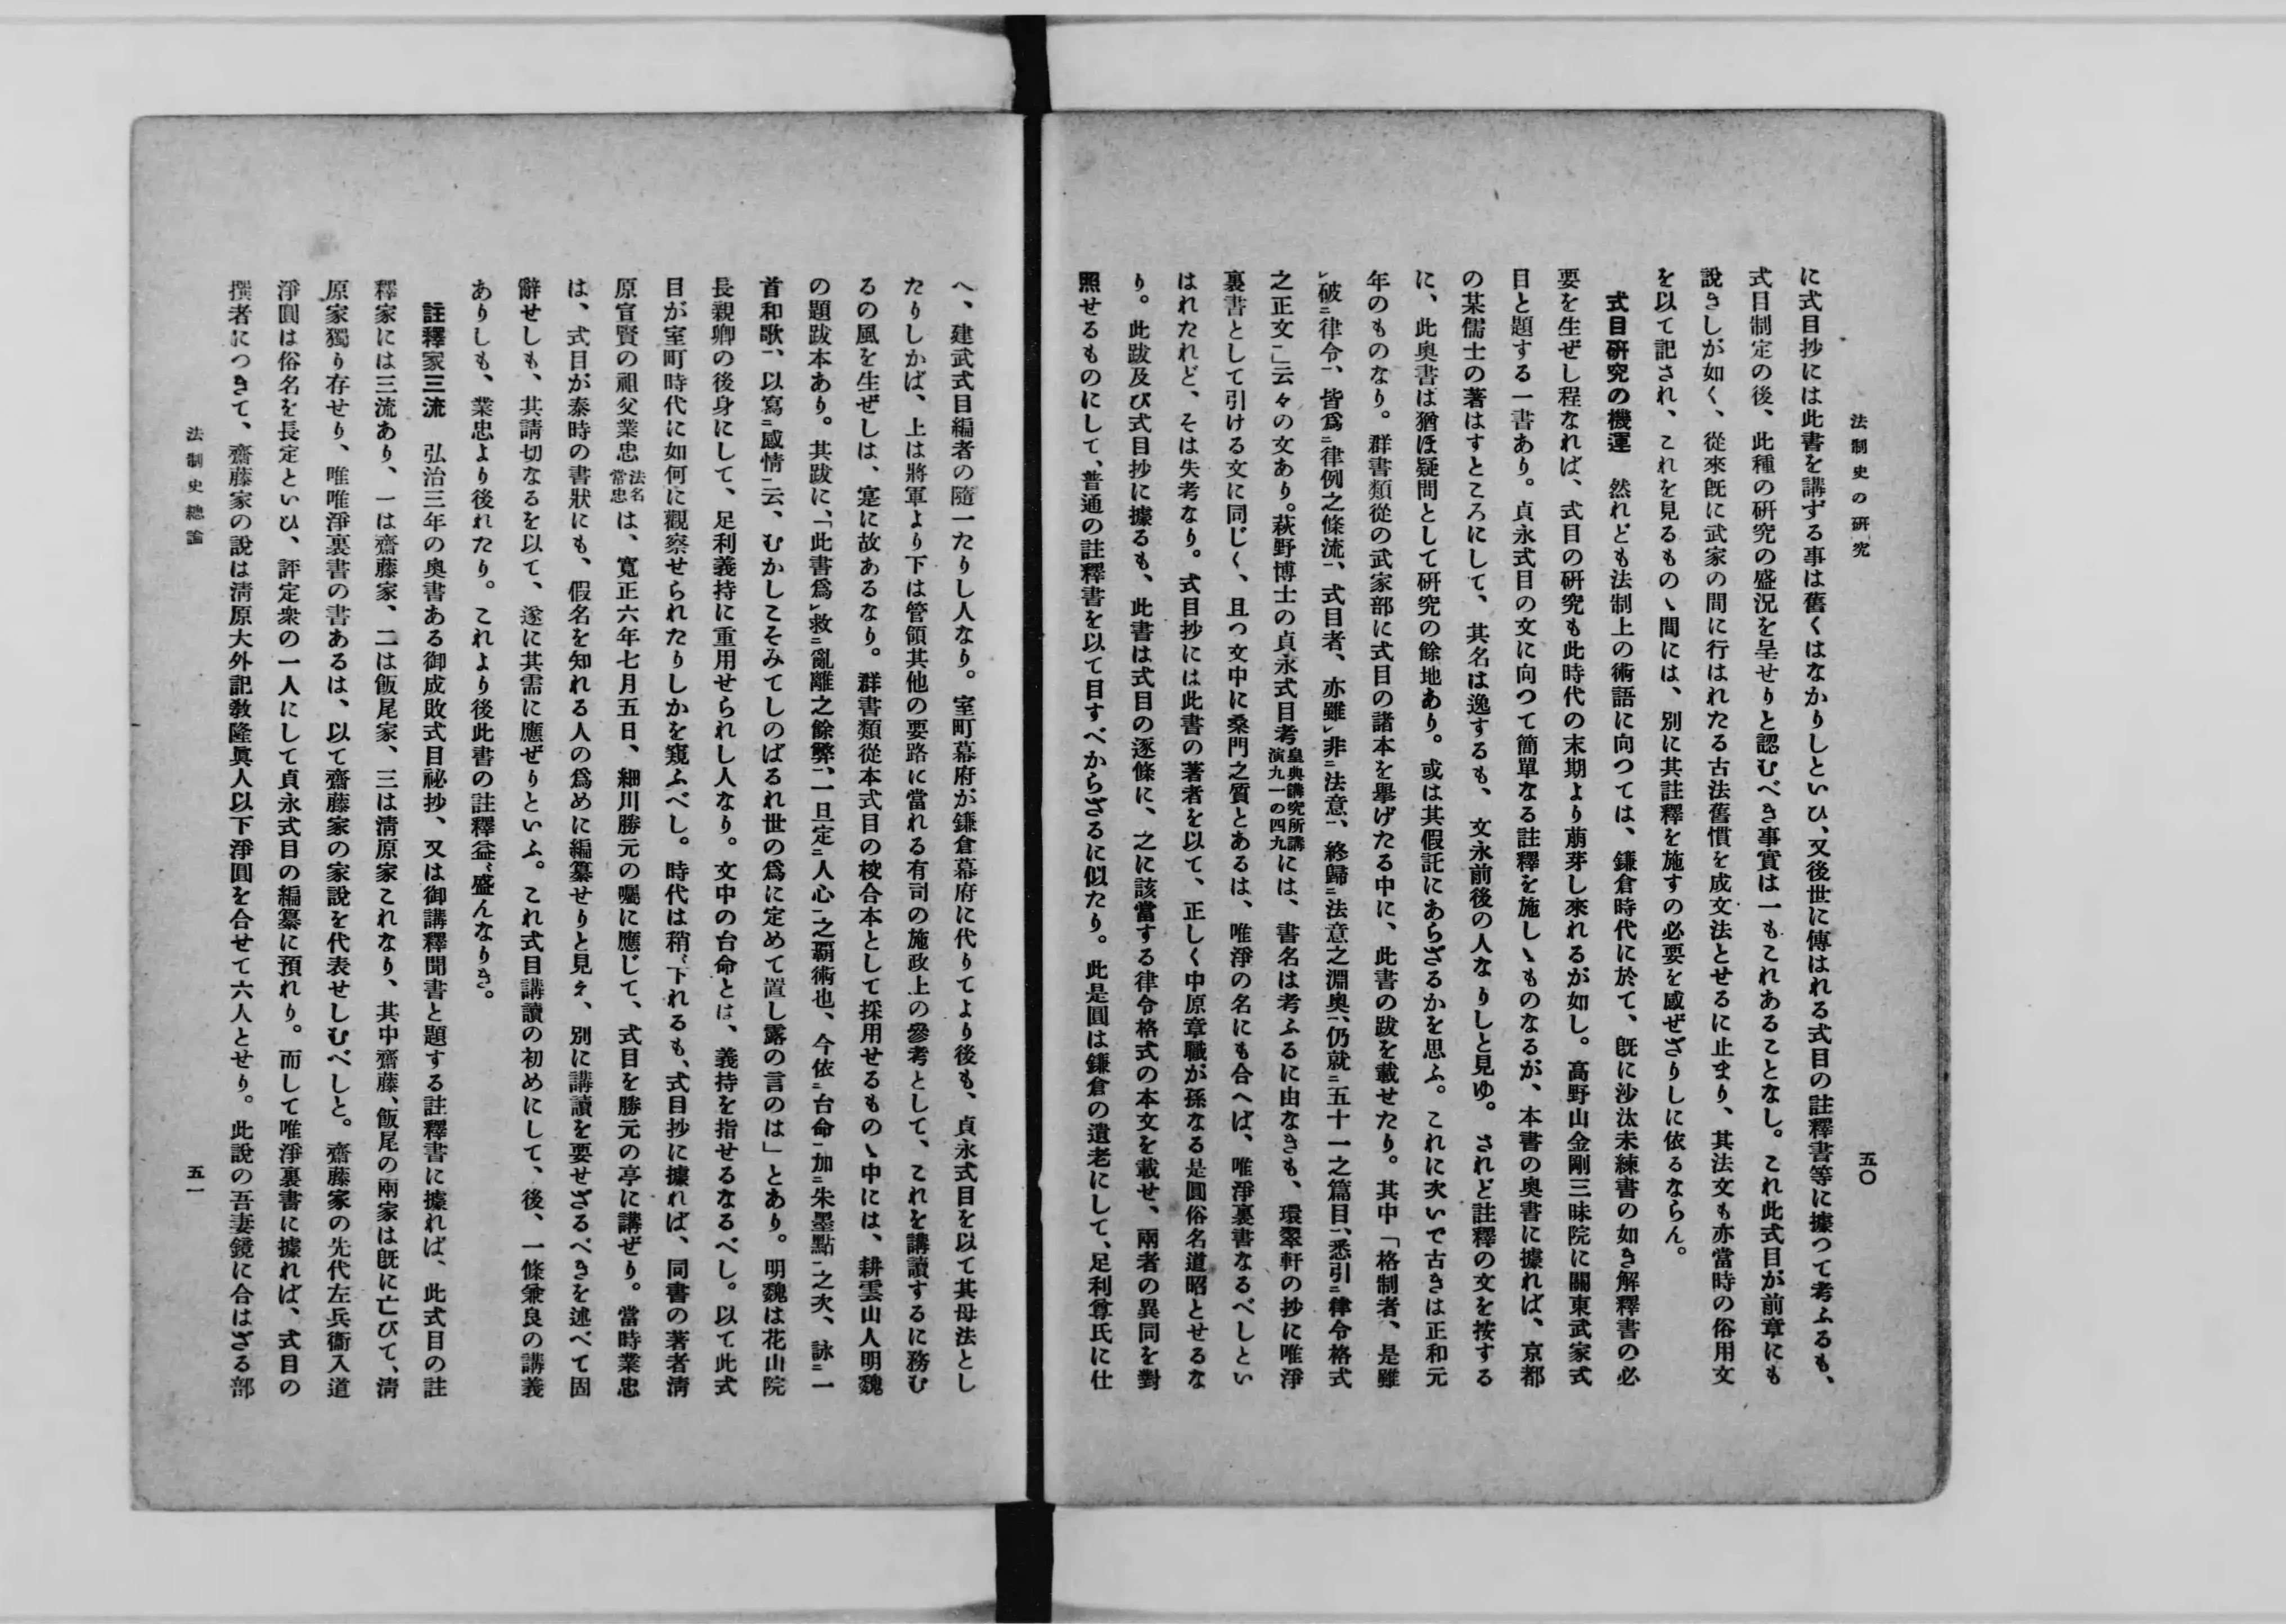 法制史の研究
五〇
に式目抄には此書を講ずる事は舊くはなかりしといひ、又後世に傳はれる式目の註釋書等に據つて考ふるも、
式目制定の後、此種の研究の盛況を呈せりと認むべき事實は一もこれあることなし。これ此式目が前章にも
說きしが如く、從來既に武家の間に行はれたる古法舊慣を成文法とせるに止まり、其法文も亦當時の俗用文
を以て記され、これを見るもの〻間には、別に其註釋を施すの必要を感ぜざりしに依るならん。
式目研究の機運　然れども法制上の術語に向つては、鎌倉時代に於て、既に沙汰未練書の如き解釋書の必
要を生ぜし程なれば、式目の研究も此時代の末期より萠芽し來れるが如し。高野山金剛三昧院に關東武家式
目と題する一書あり。貞永式目の文に向つて簡單なる註釋を施し〻ものなるが、本書の奧書に據れば、京都
の某儒士の著はすところにして、其名は逸するも、文永前後の人なりしと見ゆ。されど註釋の文を按する
に、此奧書は猶ほ疑問として研究の餘地あり。或は其假託にあらざるかを思ふ。これに次いで古きは正和元
年のものなり。群書類從の武家部に式目の諸本を擧げたる中に、此書の跋を載せたり。其中「格制者、是雖
㆑破㆓律令㆒、皆爲㆓律例之條流㆒、式目者、亦雖㆑非㆓法意㆒、終歸㆓法意之淵奧㆒、仍就㆓五十一之篇目㆒、悉引㆓律令格式
之正文㆒」云々の文あり。萩野博士の貞永式目考皇典講究所講演九一の四九には、書名は考ふるに由なきも、環翠軒の抄に唯淨
裏書として引ける文に同じく、且つ文中に桑門之質とあるは、唯淨の名にも合へば、唯淨裏書なるべしとい
はれたれど、そは失考なり。式目抄には此書の著者を以て、正しく中原章職が孫なる是圓俗名道昭とせるな
り。此跋及び式目抄に據るも、此書は式目の逐條に、之に該當する律令格式の本文を載せ、兩者の異同を對
照せるものにして、普通の註釋書を以て目すべからざるに似たり。此是圓は鎌倉の遺老にして、足利尊氏に仕
へ、建武式目編者の隨一たりし人なり。室町幕府が鎌倉幕府に代りてより後も、貞永式目を以て其母法とし
たりしかば、上は將軍より下は管領其他の要路に當れる有司の施政上の參考として、これを講讀するに務む
るの風を生ぜしは、寔に故あるなり。群書類從本式目の校合本として採用せるもの〻中には、耕雲山人明魏
の題跋本あり。其跋に、「此書爲㆑救㆓亂離之餘弊㆒、一旦定㆓人心㆒之覇術也、今依㆓台命㆒加㆓朱墨點㆒之次、詠㆓一
首和歌㆒、以寫㆓感情㆒云、むかしこそみてしのばるれ世の爲に定めて置し露の言のは」とあり。明魏は花山院
長親卿の後身にして、足利義持に重用せられし人なり。文中の台命とは、義持を指せるなるべし。以て此式
目が室町時代に如何に觀察せられたりしかを窺ふべし。時代は稍〻下れるも、式目抄に據れば、同書の著者淸
原宣賢の祖父業忠法名常忠は、寬正六年七月五日、細川勝元の囑に應じて、式目を勝元の亭に講ぜり。當時業忠
は、式目が泰時の書狀にも、假名を知れる人の爲めに編纂せりと見え、別に講讀を要せざるべきを述べて固
辭せしも、其請切なるを以て、遂に其需に應ぜりといふ。これ式目講讀の初めにして、後、一條兼良の講義
ありしも、業忠より後れたり。これより後此書の註釋益〻盛んなりき。
註釋家三流　弘治三年の奧書ある御成敗式目祕抄、又は御講釋聞書と題する註釋書に據れば、此式目の註
釋家には三流あり、一は齋藤家、二は飯尾家、三は淸原家これなり、其中齋藤、飯尾の兩家は既に亡びて、淸
原家獨り存せり、唯唯淨裏書の書あるは、以て齋藤家の家說を代表せしむべしと。齋藤家の先代左兵衞入道
淨圓は俗名を長定といひ、評定衆の一人にして貞永式目の編纂に預れり。而して唯淨裏書に據れば、式目の
撰者につきて、齋藤家の說は淸原大外記敎隆眞人以下淨圓を合せて六人とせり。此說の吾妻鏡に合はざる部
法制史總論
五一